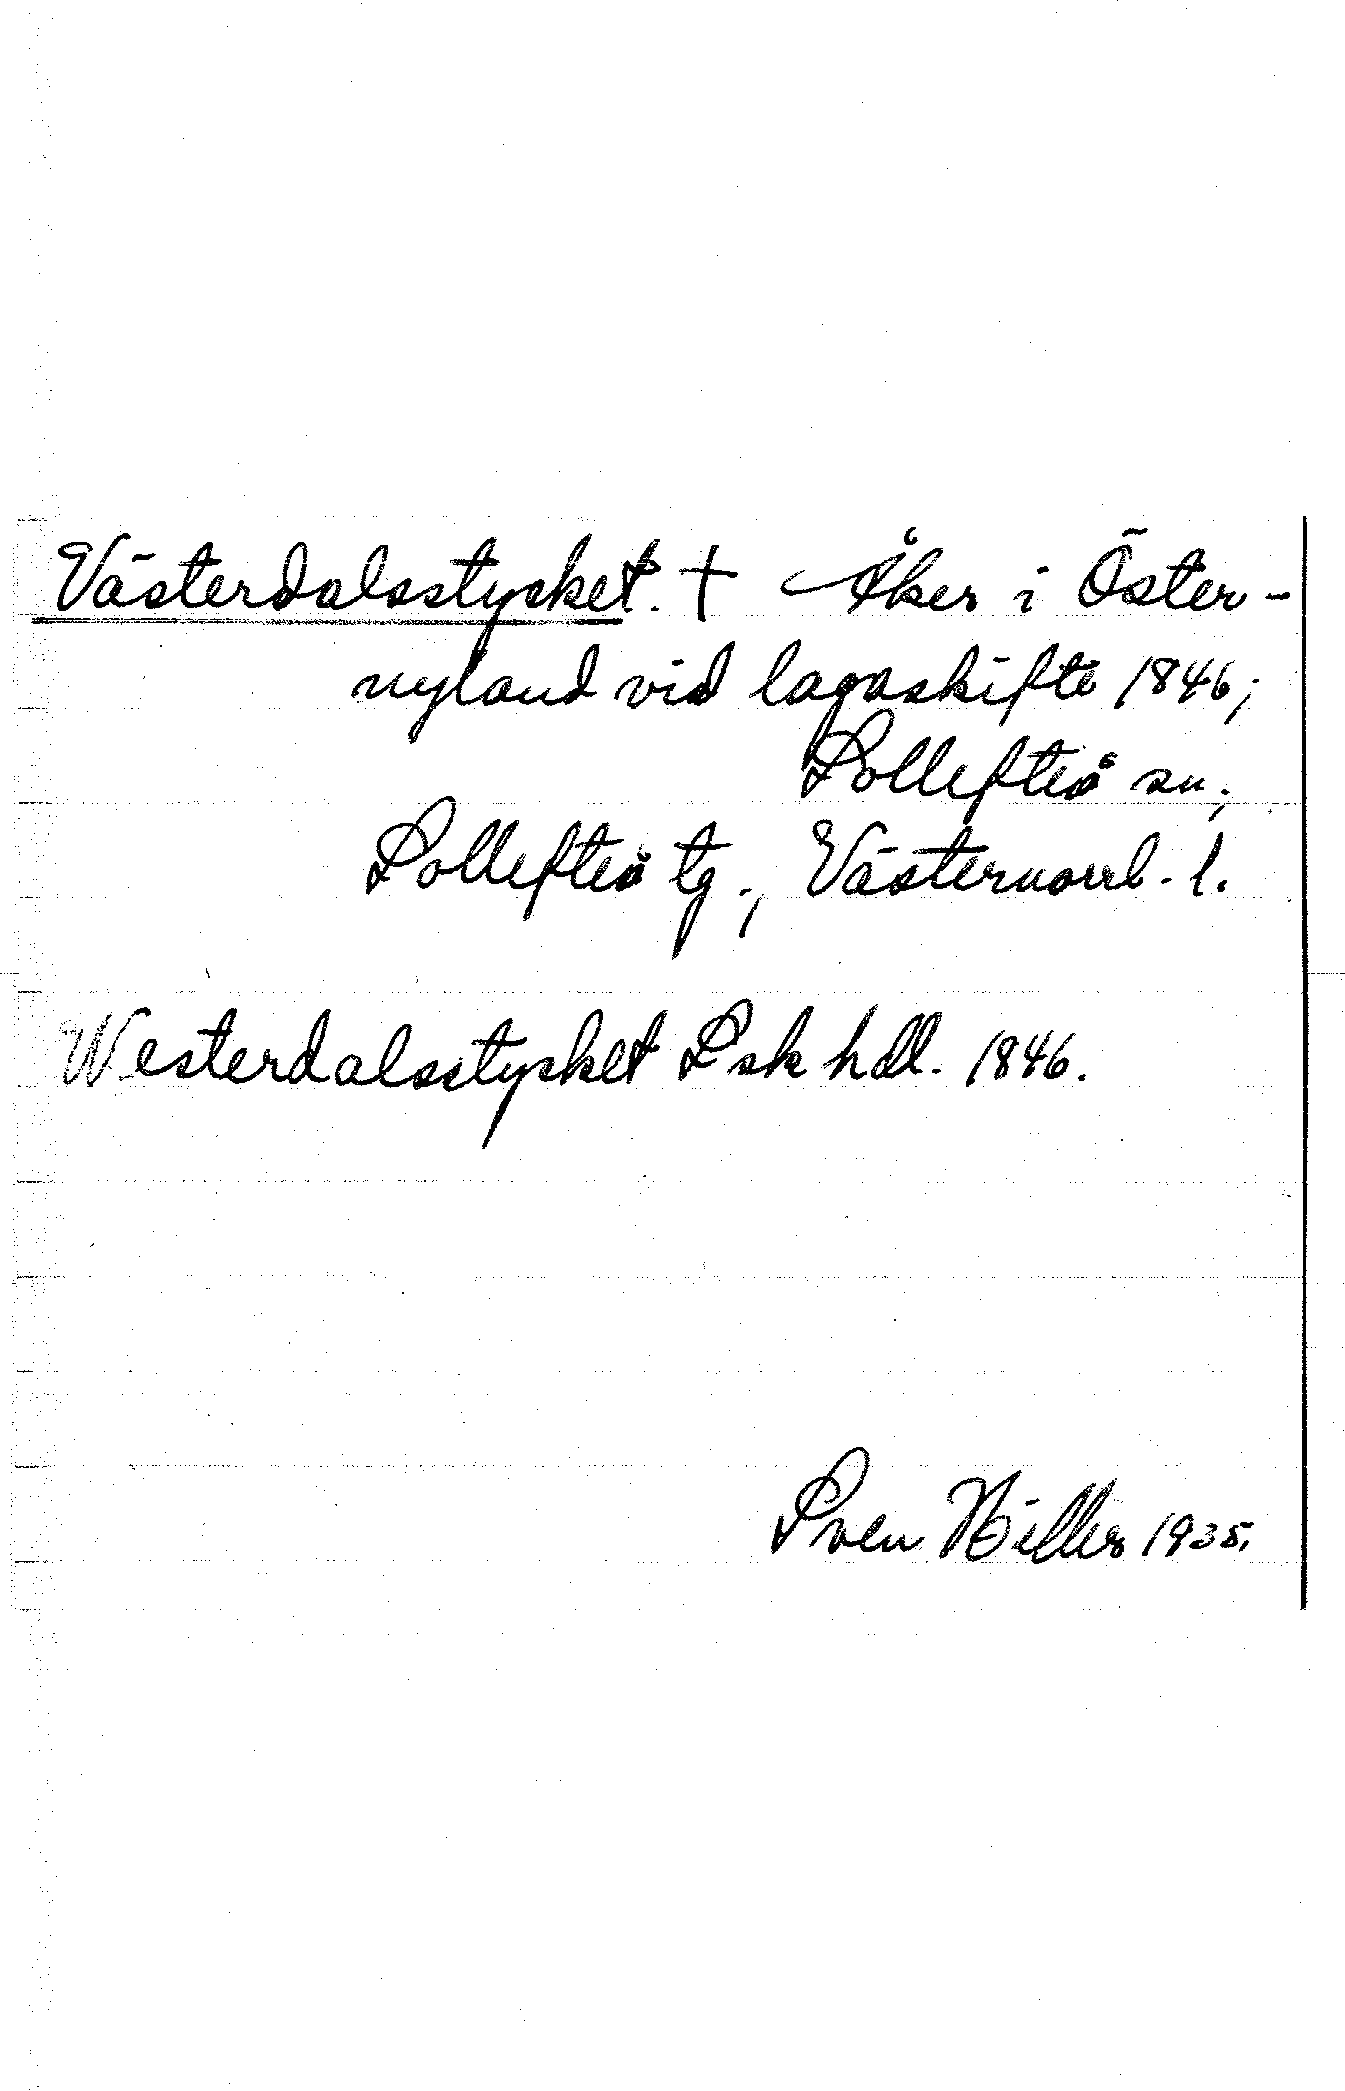 Västerdalsstycket. † Åker i Öster-
nyland vid lagaskifte 1846;
Sollefteå sn;
Sollefteå tg., Västernorrl. l.
Westerdalsstycket Lsk hdl. 1846.
Sven Hiller 1935.